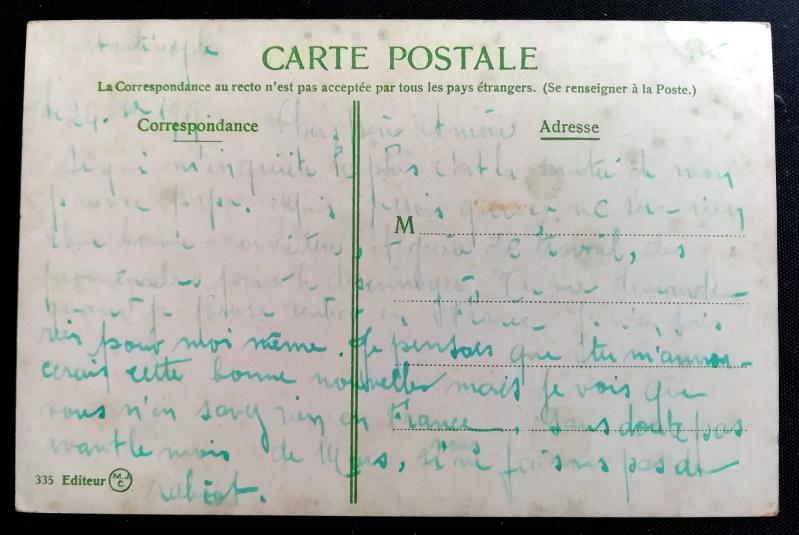 Constantinople
CARTE POSTALE
La Correspondance au recto n'est pas acceptée par tous les pays étrangers. (Se renseigner à la Poste.)
le 24.
Chers père et mère
Correspondance
Adresse
Ce qui m'inquiète le plus c'est la santé de mon
pauvre papa. mais je sais que ce ne sera rien
M
bonne nourriture, et guère de travail, des
promenades pour le désennuyer, Tu me demande
quand je pense rentrer en France Je n'en sais
rien pour moi même. Je pensais que tu m'annon-
cerais cette bonne nouvelles mais je vois que
vous n'en savez rien en France, Sans doute pas
avant le mois de Mars, si nous ne faisons pas de
rabiot.
335 Editeur M.J.C.